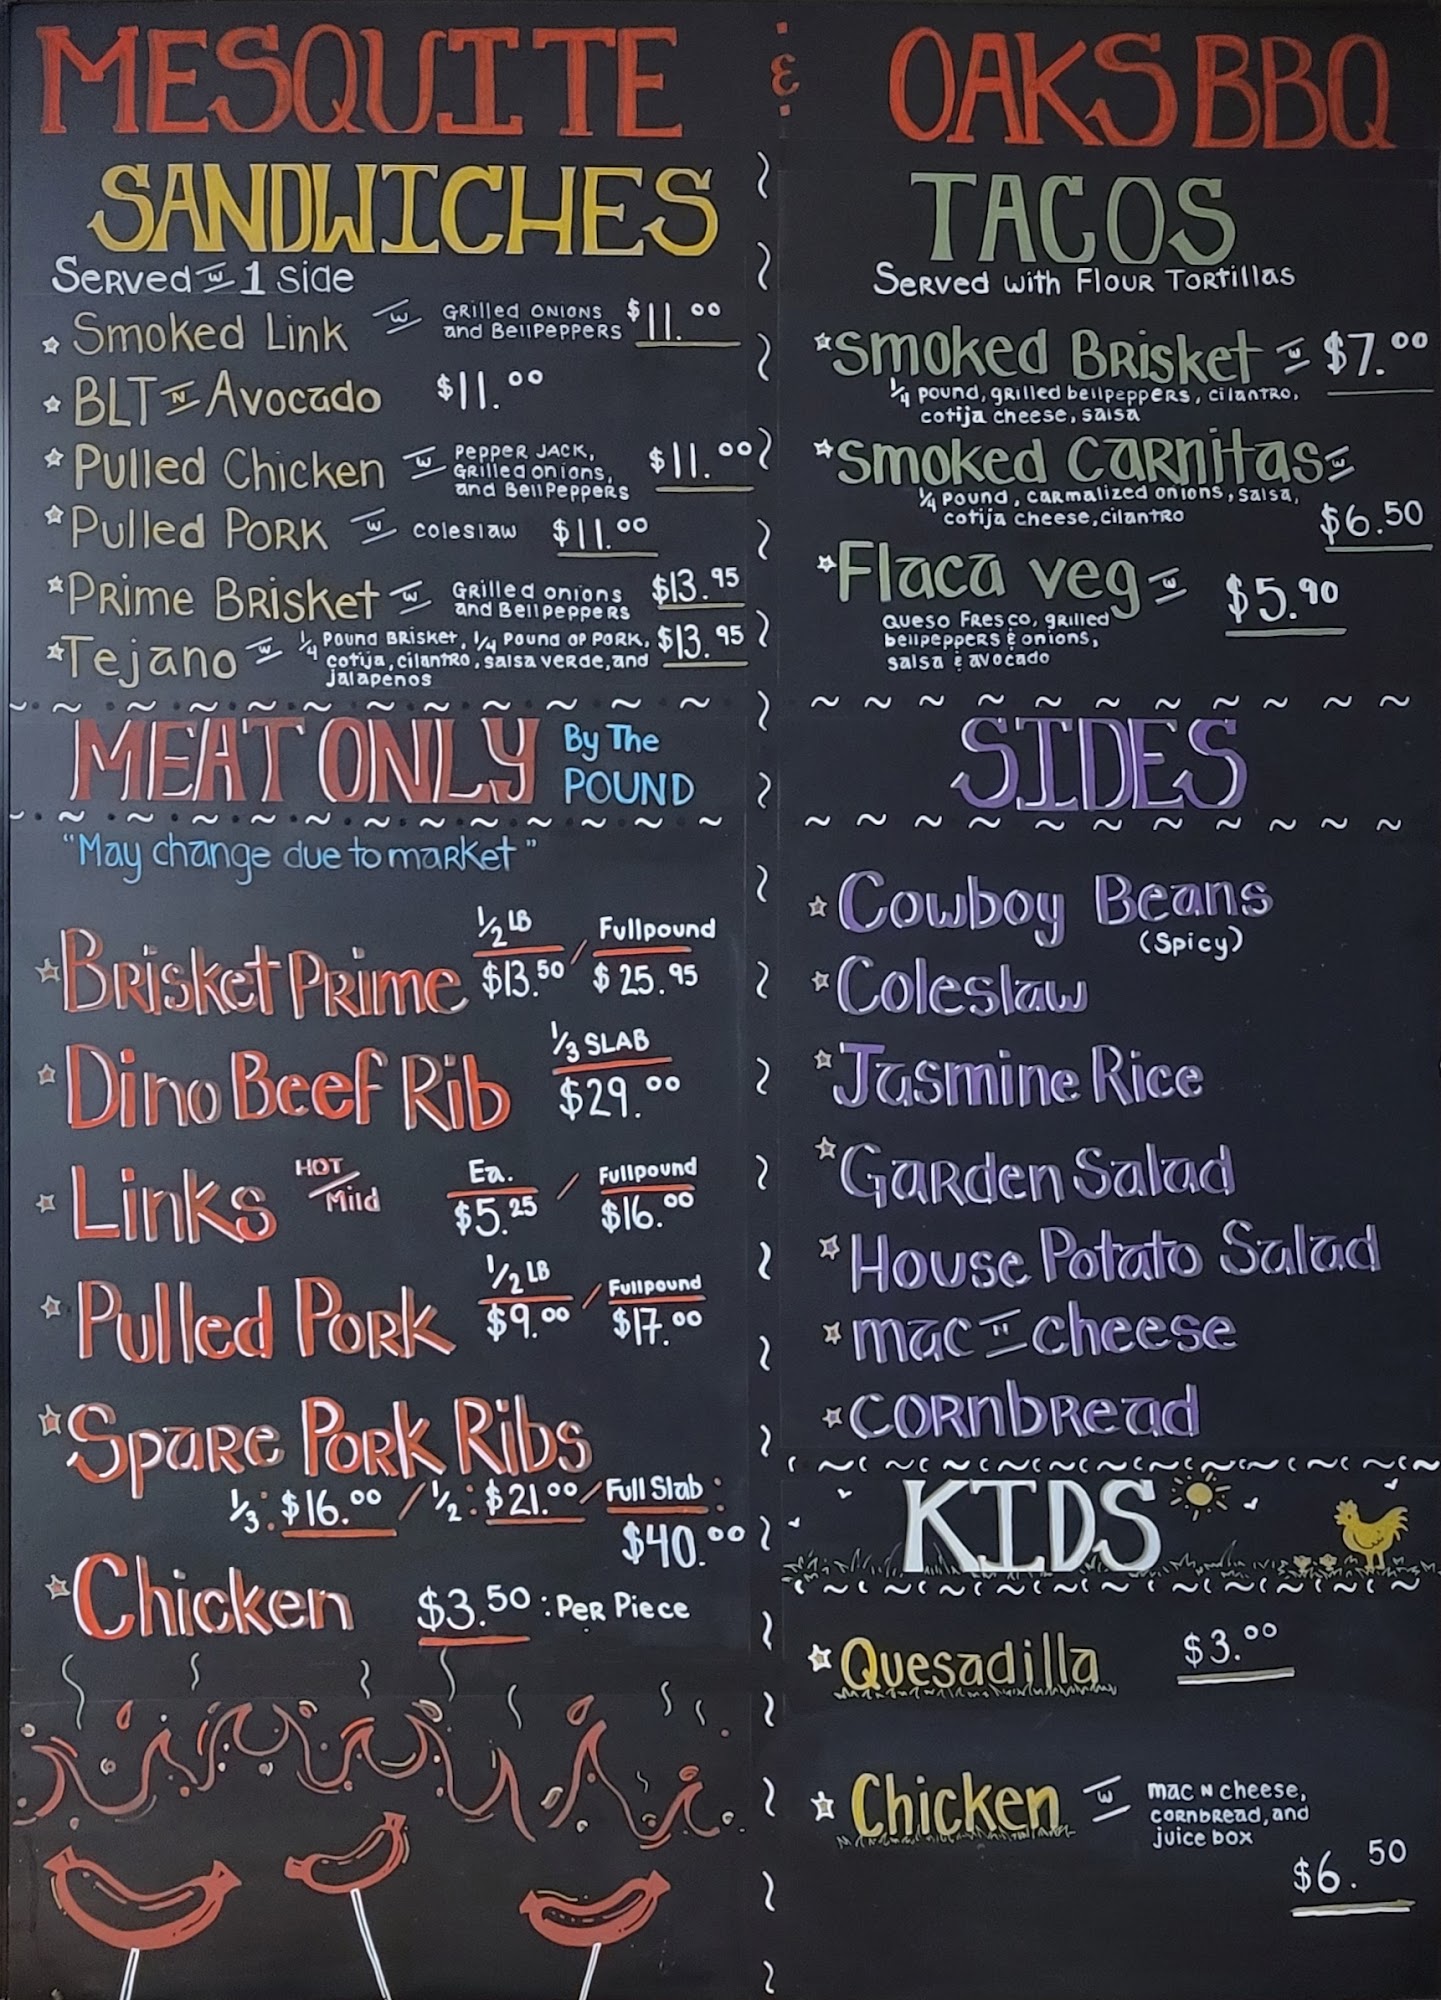 MESQUITE & OAKS BBQ
SANDWICHES
Served w 1 side
Smoked Link w Grilled onions and Bellpeppers $11.00
BLT N Avocado $11.00
Pulled Chicken w Pepper Jack, Grilled onions, and Bellpeppers $11.00
Pulled Pork w coleslaw $11.00
Prime Brisket w Grilled onions and Bellpeppers $13.95
Tejano w 1/4 Pound Brisket, 1/4 Pound of Pork, $13.95
cotija, cilantro, salsa verde, and
jalapenos
MEAT ONLY By The POUND
"May change due to market"
Brisket Prime 1/2 LB $13.50 / Fullpound $25.95
Dino Beef Rib 1/3 SLAB $29.00
Links HOT/Mild Ea. $5.25 / Fullpound $16.00
Pulled Pork 1/2 LB $9.00 / Fullpound $17.00
Spare Pork Ribs
1/3: $16.00 / 1/2: $21.00 / Full Slab: $40.00
Chicken $3.50 : Per Piece
TACOS
Served with Flour Tortillas
Smoked Brisket w $7.00
1/4 pound, grilled bellpeppers, cilantro,
cotija cheese, salsa
Smoked Carnitas w
1/4 Pound, carmalized onions, salsa,
cotija cheese, cilantro $6.50
Flaca veg w $5.90
Queso Fresco, grilled
bellpeppers & onions,
salsa & avocado
SIDES
Cowboy Beans
(Spicy)
Coleslaw
Jasmine Rice
Garden Salad
House Potato Salad
mac N cheese
Cornbread
KIDS
Quesadilla $3.00
Chicken w mac N cheese,
cornbread, and
juice box
$6.50